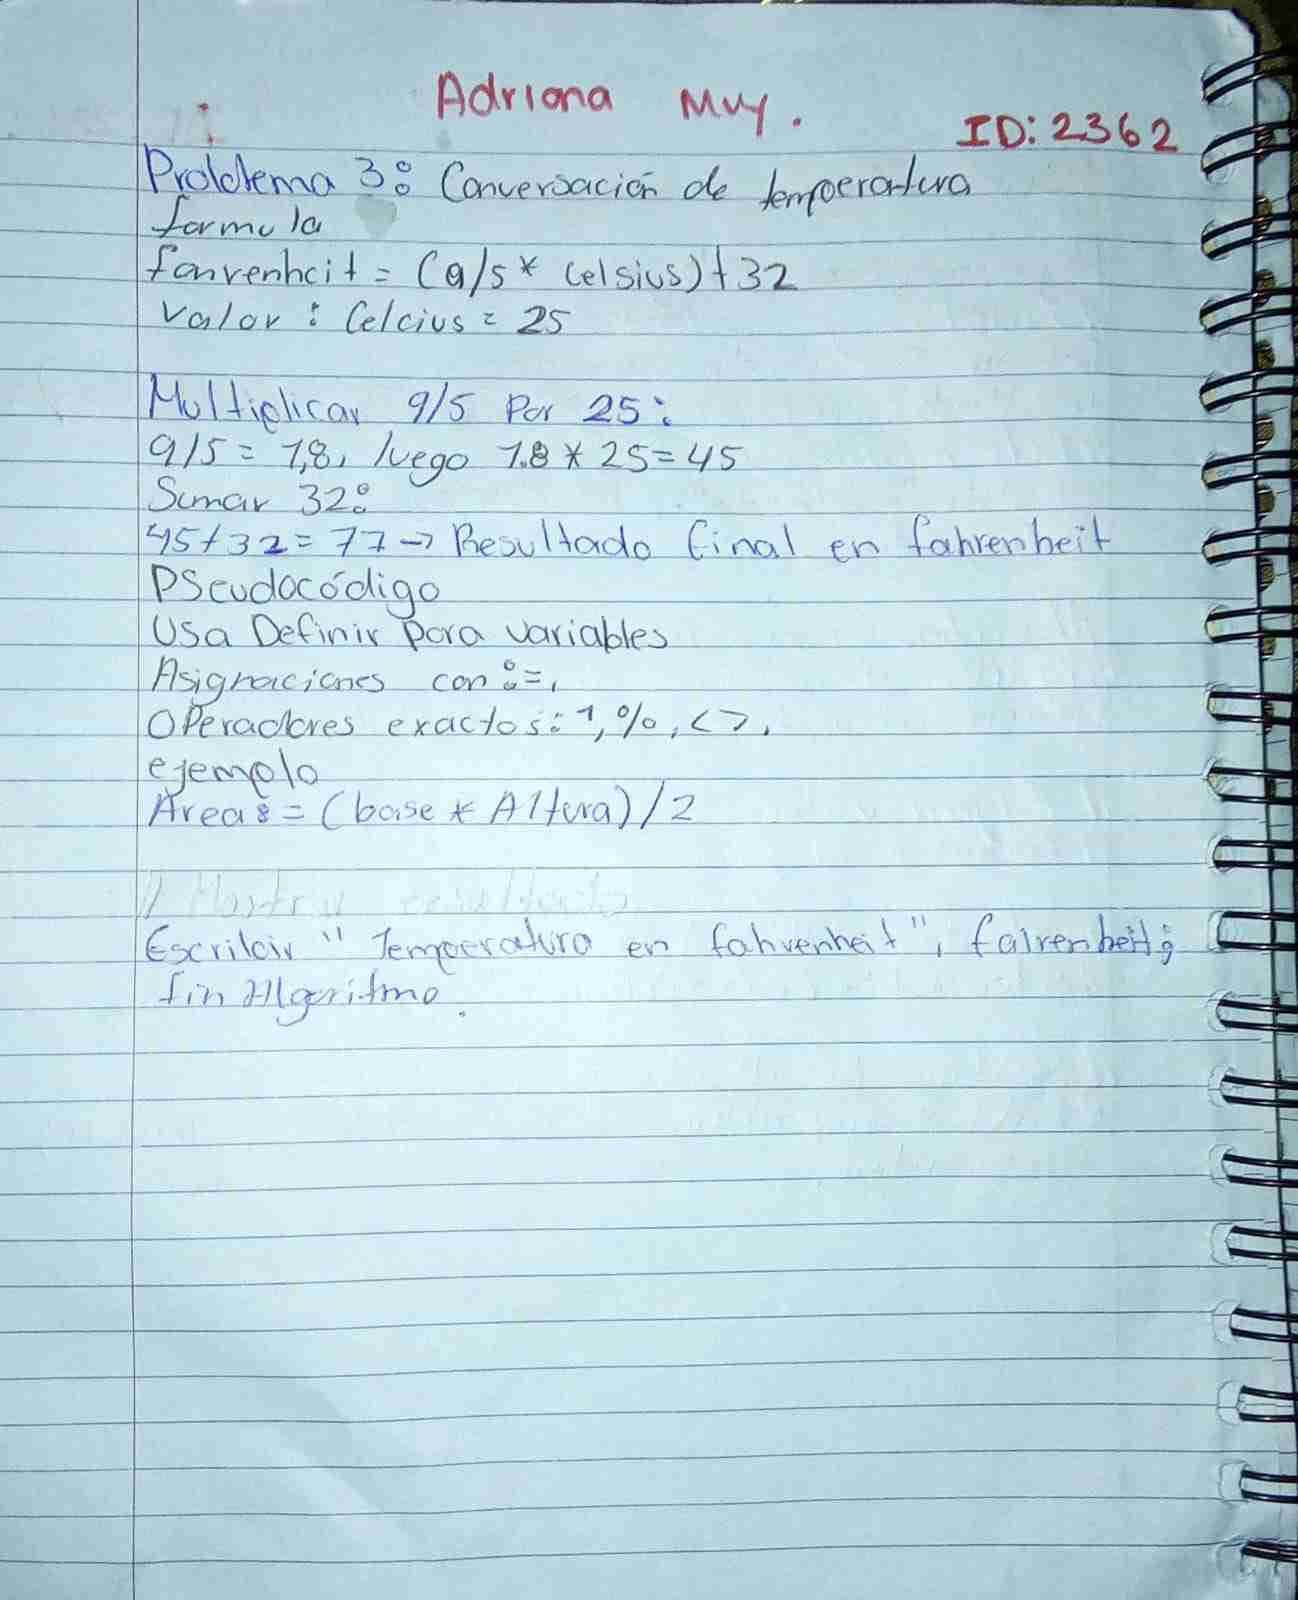 Adriana Muy.
ID: 2362
Problema 3: Conversación de temperatura
formula
fahrenheit = (9/5 * Celsius) + 32
Valor : Celcius = 25
Multiplicar 9/5 Por 25:
9/5 = 1,8, luego 1.8 * 25 = 45
Sumar 32:
45 + 32 = 77 → Resultado final en fahrenheit
PSeudocódigo
Usa Definir para variables
Asignaciones con :=,
Operadores exactos: ^, %, <>.
ejemplo
Area := (base * Altura) / 2
// Mostrar resultado
Escribir " Temperatura en fahrenheit", fahrenheit;
fin Algoritmo.